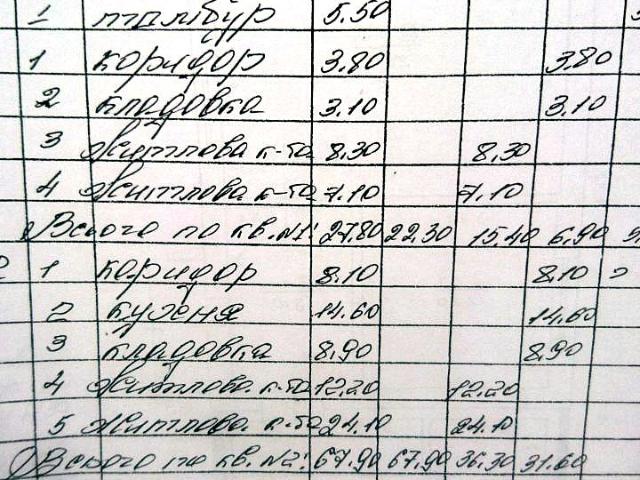 1 тамбур 5.50
1 коридор 3.80 3.80
2 кладовка 3.10 3.10
3 житлова к-та 8.30 8.30
4 житлова к-та 7.10 7.10
Всього по кв.N1: 27.80 22.30 15.40 6.90
2 1 коридор 8.10 8.10
2 кухня 14.60 14.60
3 кладовка 8.90 8.90
4 житлова к-та 12.20 12.20
5 житлова к-та 24.10 24.10
Всього по кв.N2: 67.90 67.90 36.30 31.60